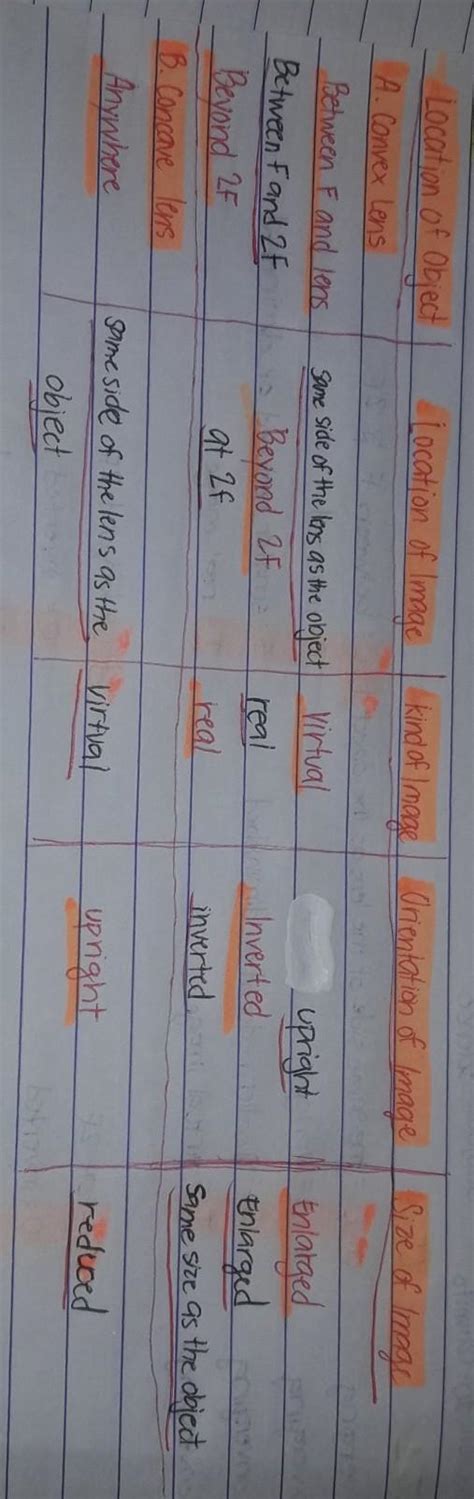 Location of Object Location of Image kind of Image Orientation of Image Size of Image
A. Convex Lens
Between F and lens same side of the lens as the object Virtual upright Enlarged
Between F and 2F Beyond 2F real Inverted Enlarged
Beyond 2F at 2F real inverted same size as the object
B. Concave lens
Anywhere same side of the lens as the virtual upright reduced
object